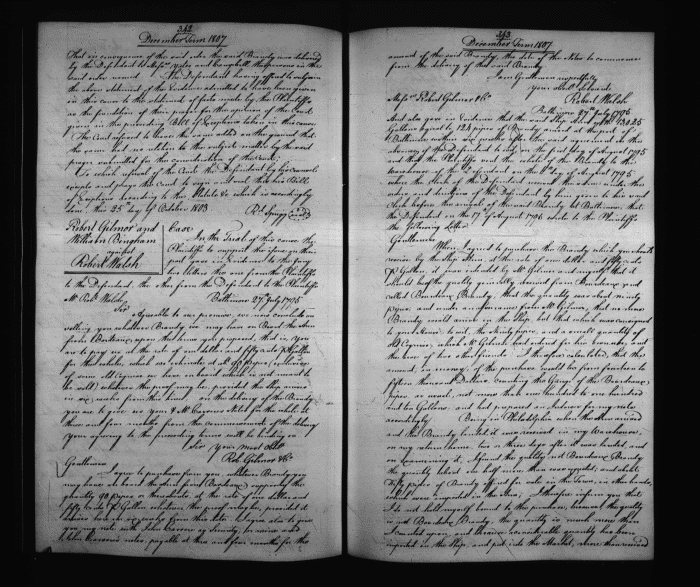 342
December Term 1807
That in consequence of the said order the said Brandy was delivered
by the Defendant to Messrs Yates and Campbell the persons in the
said order named. The Defendant having offered to rely on
the above statement of the evidence admitted to have been given
in this cause to the statement of facts made by the Plaintiffs
as the foundation of their prayer for the opinion of the Court
given in the present Bill of Exceptions taken in this cause
The Court refused to have the same added on the ground that
the same had no relation to the subject matter by the said
prayer submitted for the consideration of the Court;
To which refusal of the Court the Defendant by his counsel
excepts and prays the Court to sign and seal this his Bill
of Exceptions according to the Statute &c which is accordingly
done this 25 day of October 1803
Robert Gilmor and
William Bingham
against
Robert Walsh
Case
In the Trial of this cause the
Plaintiffs to support the issue on their
part gave in Evidence to the Jury
two letters the one from the Plaintiffs
to the Defendant, the other from the Defendant to the Plaintiffs
Mr Robt Walsh, Baltimore 27 July 1795
Sir
Agreeable to our promise, we now conclude on
selling you whatever Brandy we may have on Board the Ann
from Bordeaux, upon the terms you proposed, that is, you
are to pay us at the rate of one dollar and fifty cents p Gallon
for the whole, which we estimate at 90 pipes, (exclusive
of some old Cognac we have on board which is not meant to
be sold) whatever the proof may be, provided the ship arrives
in six weeks from this time, on the delivery of the Brandy
you are to give us your & Mr Cravens Notes for the whole at
three and four months from the commencement of the delivery
your agreeing to the foregoing terms will be binding on
Sir Your most Obt
Robt Gilmor & Co
Gentlemen
I agree to purchase from you, whatever Brandy you
may have on board the Ann from Bordeaux, supposing the
quantity 90 pipes or thereabouts, at the rate of one dollar and
fifty cents p Gallon whatever the proof may be, provided it
arrives here in six weeks from this date. I agree also to give
you my note, with John Craven as Security, or mine and
John Cravens notes, payable at three and four months for the
343
December Term 1807
amount of the said Brandy, the date of the Notes to commence
from the delivery of the said Brandy
I am Gentlemen respectfully
your obdt Servt
Robert Walsh
Messrs Robert Gilmor & Co
Baltimore 27th July 1795
And also gave in Evidence that the said Ship Ann with
Gallons
of Brandy arrived at the port of
Baltimore within six weeks
on the first day of August 1795
and that the Plaintiffs
sent the whole of the Brandy to the
Warehouse of the Defendant on the
day of August 1795
the Clerk of the Defendant
received the same under the
order and direction of the Defendant by him given to his said
Clerk before the arrival of the said Brandy at Baltimore, that
the Defendant on the 17 of August 1795 wrote to the Plaintiffs
the following Letter
Gentlemen
When I agreed to purchase the Brandy which you should
receive by the Ship Ann, at the rate of one dollar and fifty cents
p Gallon, it was intended by Mr Gilmor and myself that it
should be of the quality generally derived from Bordeaux and
called Bordeaux Brandy, that the quantity was about ninety
pipes, and under an assurance from Mr Gilmor, that no more
Brandy would arrive in the Ship, but that which was consigned
to your House to wit, the Ninety pipes, and a small quantity of
old Cognac, which Mr Gilmor had ordered for his own use, and
the use of some other friends. I therefore calculated, that the
amount, in money, of the purchase would be from fourteen to
fifteen thousand Dollars, counting the Gauge of the Bordeaux
pipes as usual, not more than one hundred to one hundred
and ten Gallons, and had prepared an Indorser for my notes
accordingly. Being in Philadelphia when the Ship arrived
and the Brandy landed it was received in my Warehouse,
on my return home, two or three days after it was landed, and
on examining it, I found the quality not Bordeaux Brandy
the quantity taken one half more than was expected, and about
Fifty pipes of Brandy offered for sale in the Town, in other hands,
which were imported in the Ann. I therefore inform you that
I do not hold myself bound to this purchase, because the quality
is not Bordeaux Brandy, the quantity is much more than
I counted upon, and because a considerable quantity has been
imported in the Ship, and put into the Market, where there remained